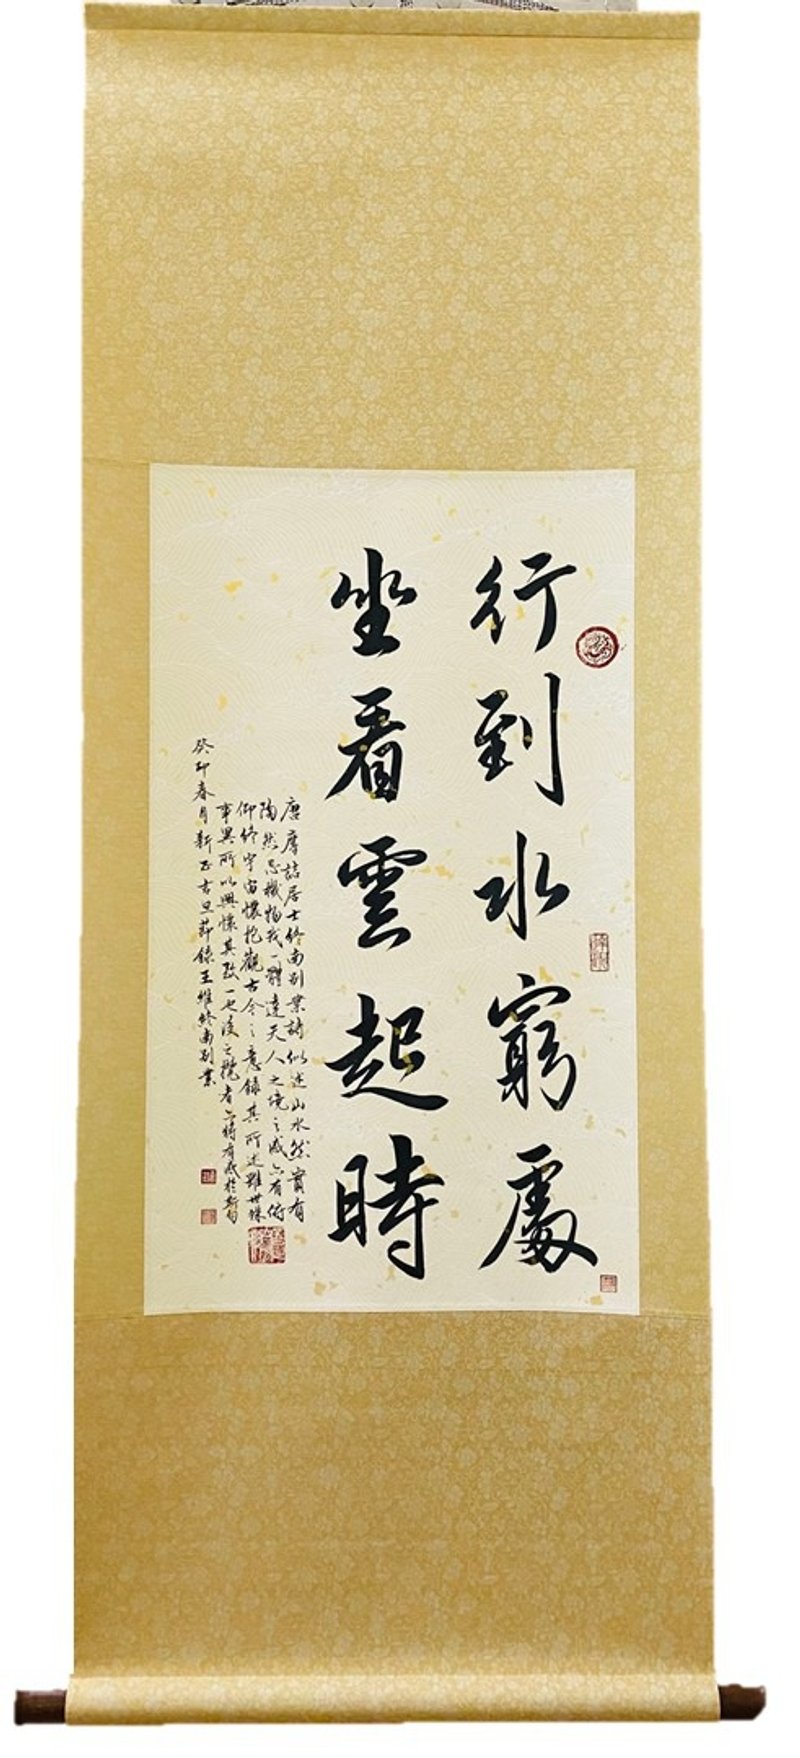 行到水窮處
坐看雲起時
唐摩詰居士終南別業詩似述山水然實有
陶然忘機物我一體達天人之境之感亦有俯
仰終宇宙懷抱觀古今之意錄其所述雖世殊
事異所以興懷其致一也後之攬者亦將有感於斯句
癸卯春月新正吉旦 錄王維終南別業